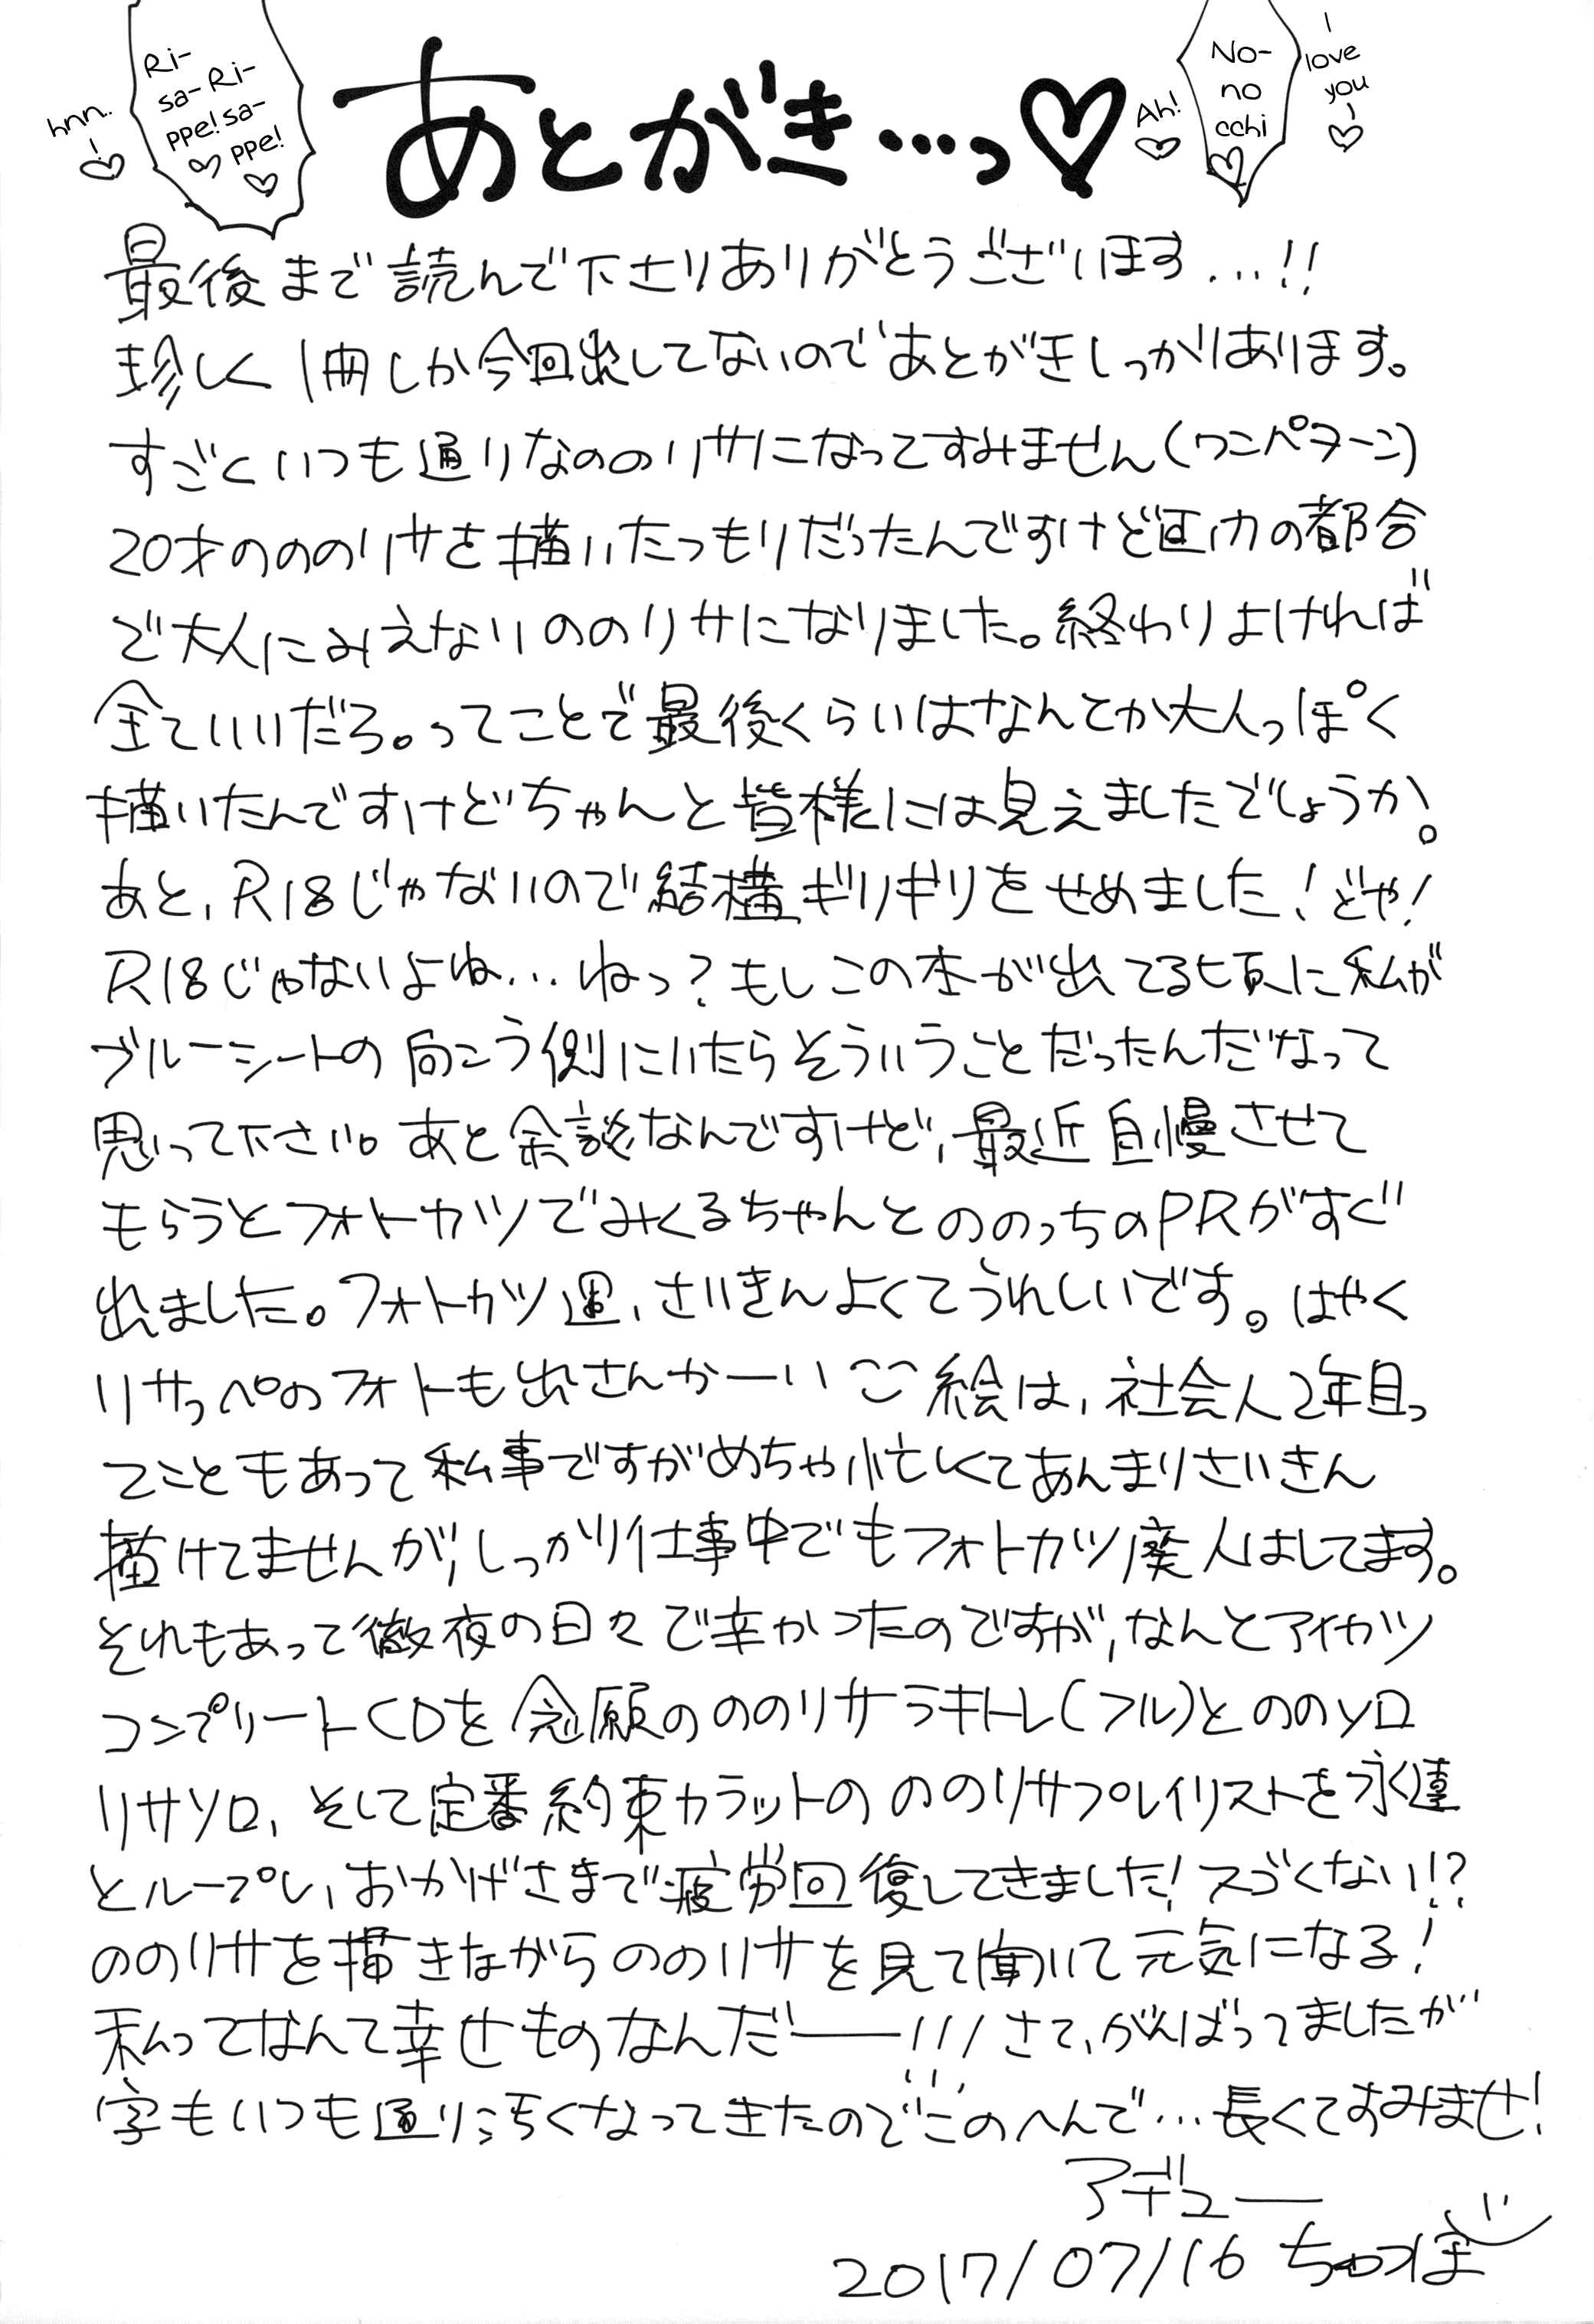 hnn..! ♡
Ri-sa-ppe! ♡
Ri-sa-ppe! ♡
あとがき…っ♡
Ah! ♡
No-nocchi ♡
I love you ~ ♡
最後まで読んで下さりありがとうございます...!!
珍しく1冊しか今回出してないのであとがきしっかりあります。
すごくいつも通りなののリサになってすみません(ワンパターン)
20才のののリサを描いたつもりだったんですけど画力の都合
で大人にみえないののリサになりました。終わりよければ
全ていいだろ。ってことで最後くらいはなんとか大人っぽく
描いたんですけどちゃんと皆様には見えましたでしょうか!。
あと、R18じゃないので結構ギリギリをせめました!どや!
R18じゃないよね…ねっ?もしこの本が出てる頃に私が
ブルーシートの向こう側にいたらそういうことだったんだなって
思って下さい。あと余談なんですけど、最近自慢させて
もらうとフォトカツでみくるちゃんとののっちのPRがすぐ
出ました。フォトカツ運、さいきんよくてうれしいです。はやく
リサっペのフォトも出さんかーい 絵は、社会人2年目っ
てこともあって私事ですがめちゃ忙しくてあんまりさいきん
描けてませんが、しっかり仕事中でもフォトカツ廃人はしてます。
それもあって徹夜の日々で辛かったのですが、なんとアイカツ
コンプリートCDを念願のののリサラキトレ(フル)とののソロ
リサソロ、そして定番約束カラットの ののリサプレイリストを永遠
とループし、おかげさまで疲労回復してきました!スゴくない!?
ののリサを描きながらののリサを見て聞いて元気になる!
私ってなんて幸せものなんだー!!! さて、がんばってましたが
字もいつも通り汚くなってきたのでこのへんで…長くてすみませ!
アデュー
2017/07/16 ちゅつぼ